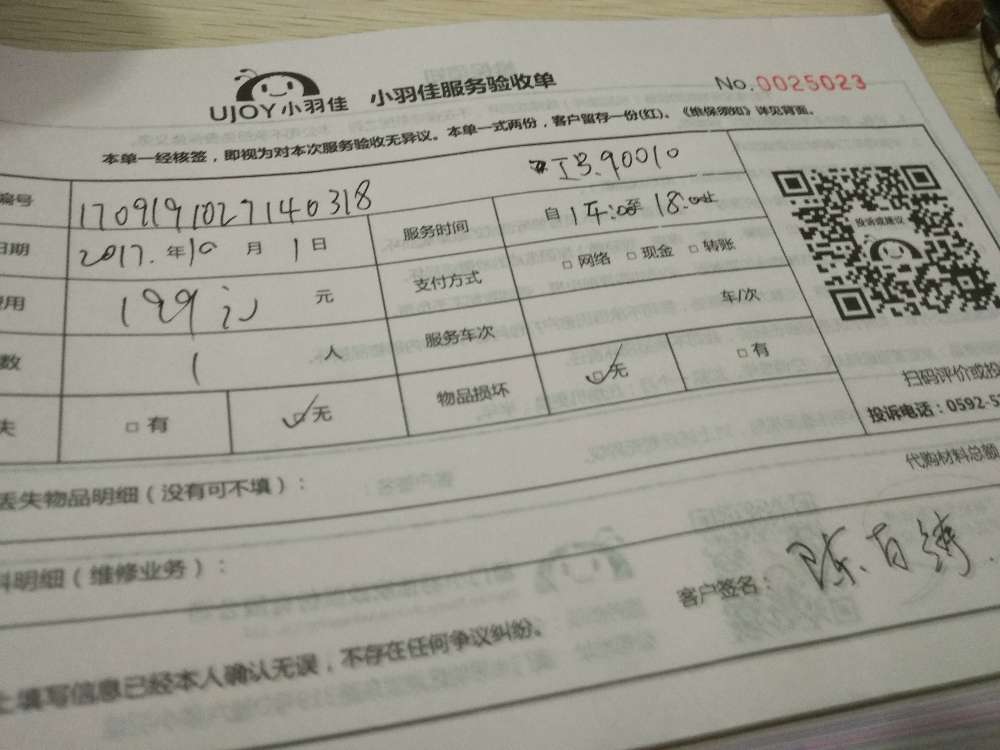 UJOY小羽佳 小羽佳服务验收单 No.0025023
本单一经核签，即视为对本次服务验收无异议。本单一式两份，客户留存一份(红)。《维保须知》详见背面。
编号 1709191027140318 工号.90010
日期 2017.年10月1日 服务时间 自 14:00至18:00止
用 199 元 支付方式 □网络 □现金 □转账
数 1 人 服务车次 车/次
失 □有 ✓□无 物品损坏 ✓□无 □有
投诉或建议
扫码评价或投
投诉电话：0592-5
丢失物品明细（没有可不填）：
代购材料总额
料明细（维修业务）：
客户签名：陈
上填写信息已经本人确认无误，不存在任何争议纠纷。